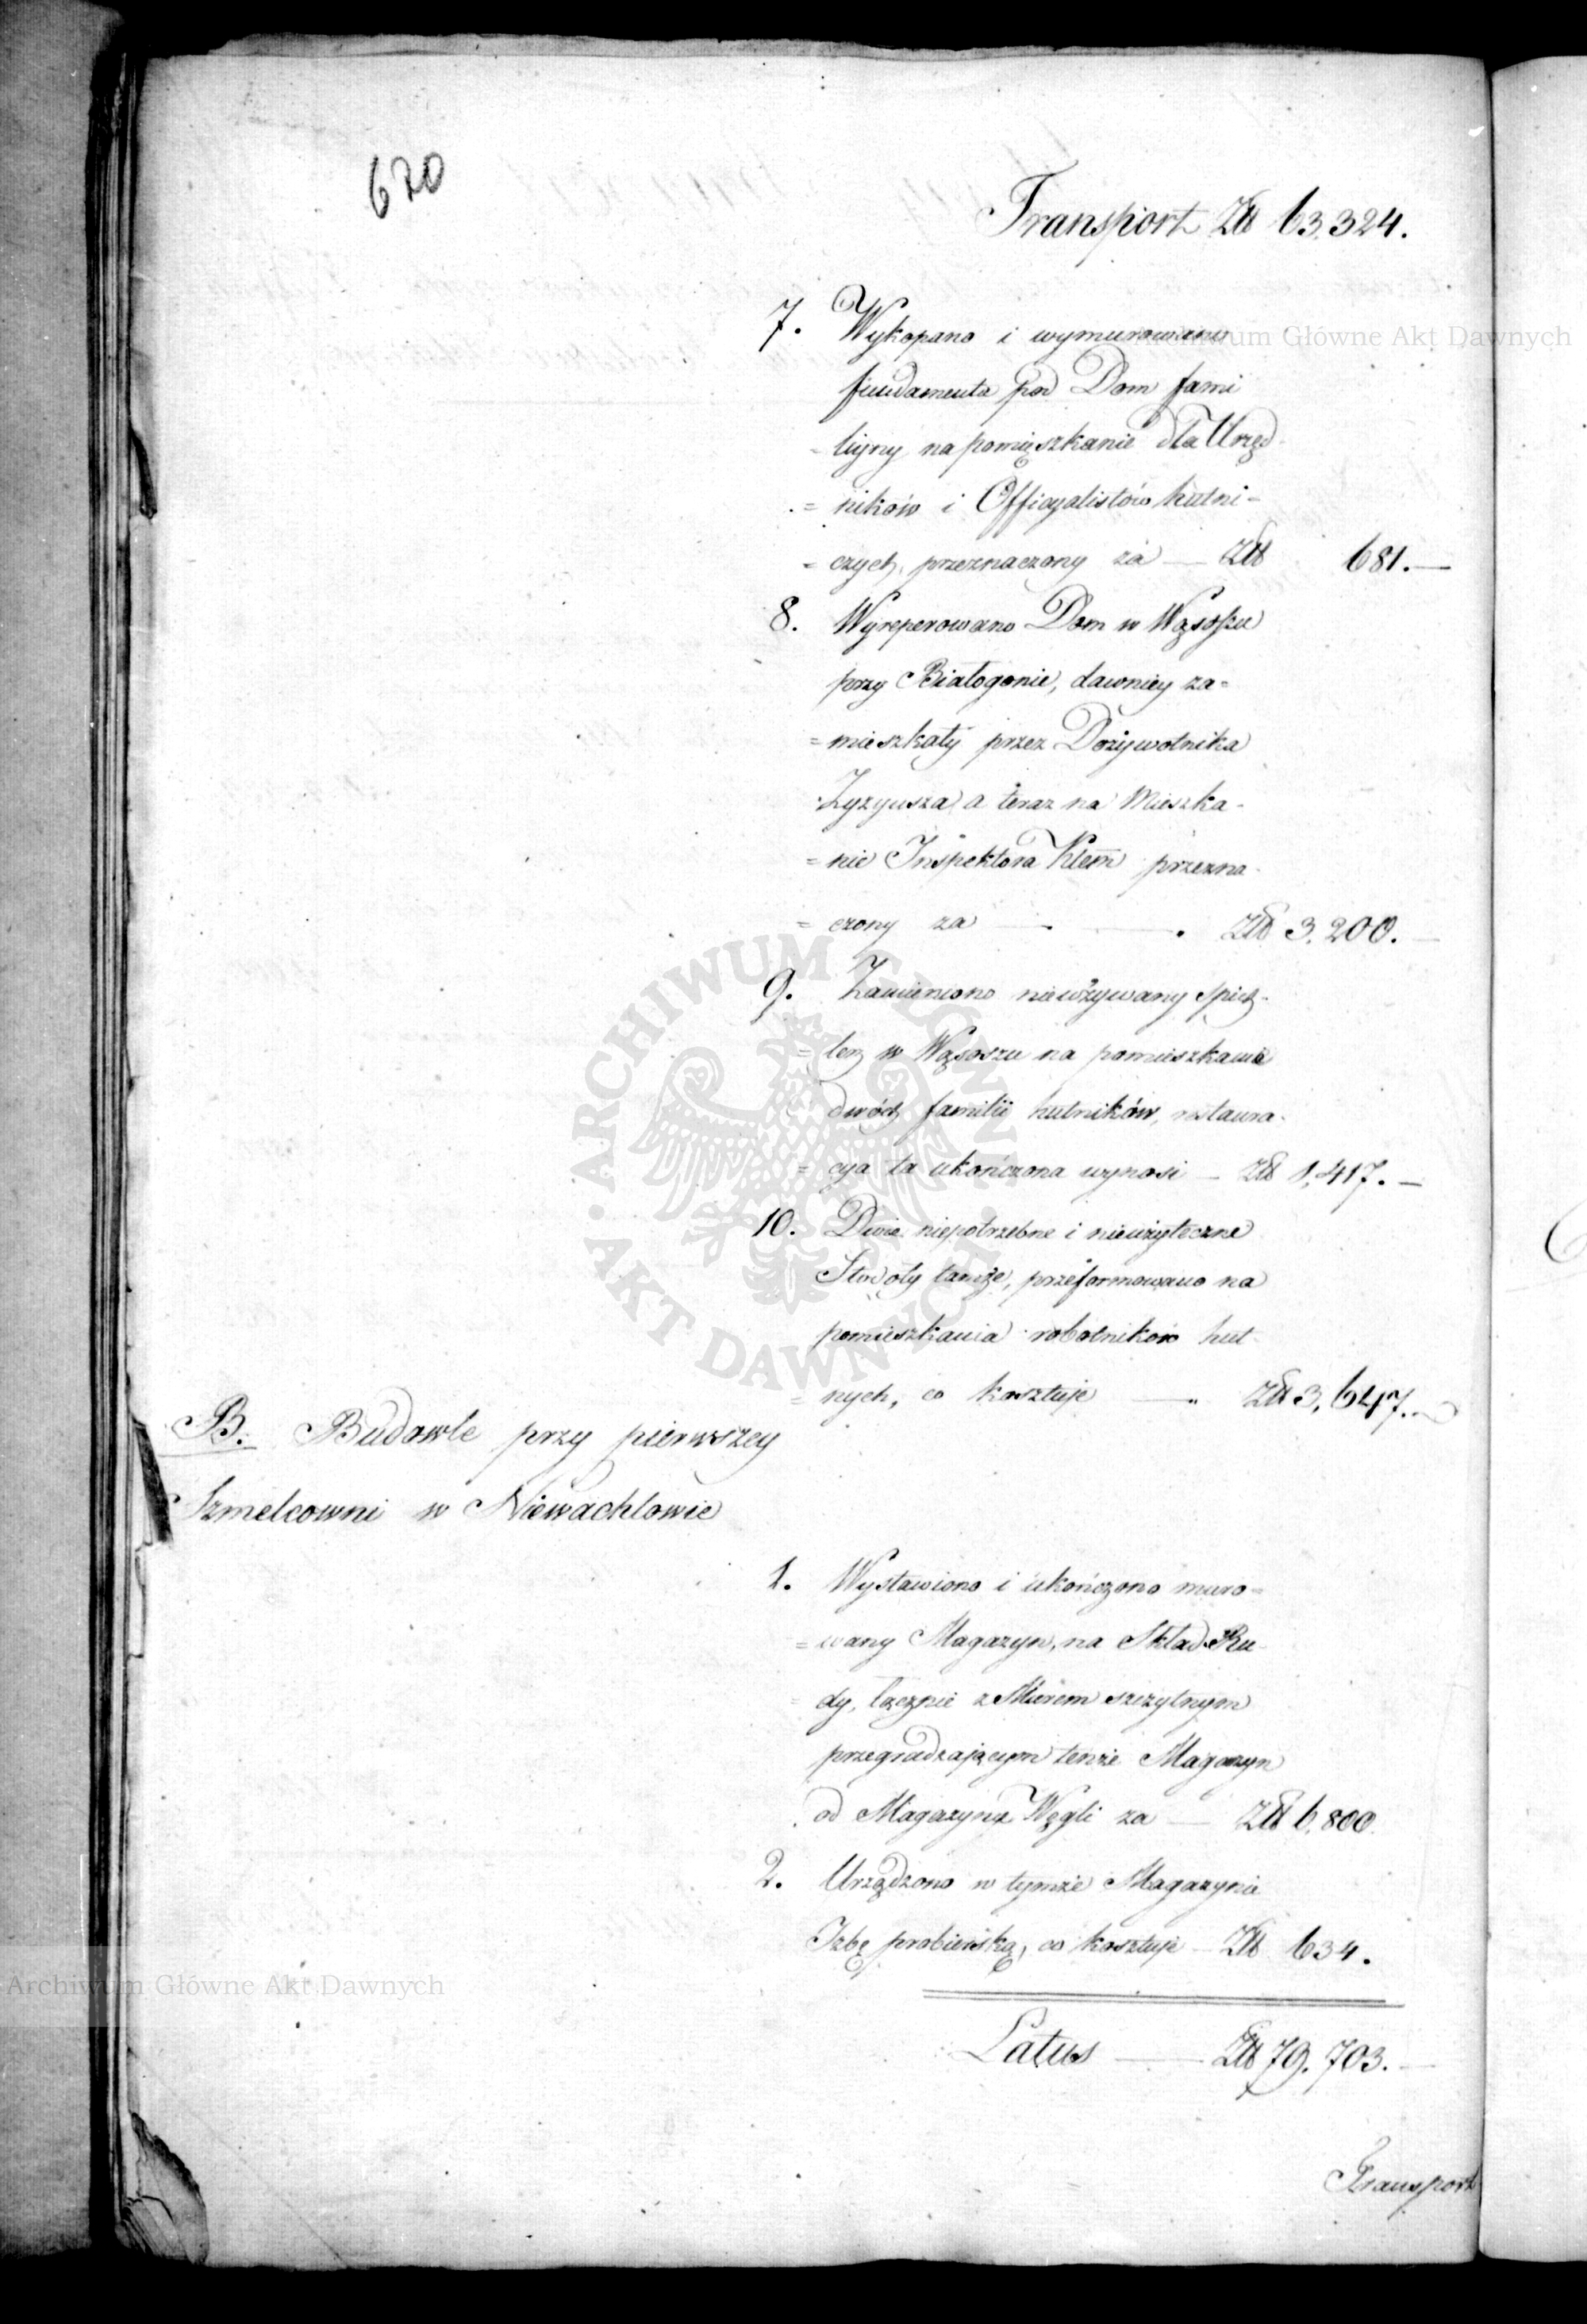 620
Transport Złł 63,324.
7. Wykopano i wymurowano
fundamenta pod Dom fami
=lijny na pomięszkanie dla Urzęd-
=ników i Officyalistów hutni=
=czych przeznaczony za — Złł 681.—
8. Wyreperowano Dom w Wąsoszu
przy Białogonie, dawniey za=
=mieszkały przez Dożywotnika
Zyzyusza, a teraz na Mieszka-
=nie Inspektora Klem̄ przezna-
=czony za — . — . Złł 3,200.—
9. Zamieniono nieużywany Spich-
=lerz w Wąsoszu na pomieszkanie
dwóch familii hutników, restaura-
=cya ta ukończona wynosi — Złł 1,417.—
10. Dwie niepotrzebne i nieużyteczne
Stodoły tamże, przeformowano na
pomieszkania robotników hut-
=nych, co kosztuje — . Złł 3,647.—
B. Budowle przy pierwszey
Szmelcowni w Niewachlowie
1. Wystawiono i ukończono muro=
=wany Magazyn, na Skład Ru-
dy, łącznie z Murem szczytnym
przegradzającym tenże Magazyn
od Magazynu Węgli za — Złł 6,800.
2. Urządzono w tymże Magazynie
Izbę probierską, co kosztuje — Złł 634.
Latus — Złł 79,703.—
Transport
Archiwum Główne Akt Dawnych
Archiwum Główne Akt Dawnych
ARCHIWUM GŁÓWNE · AKT DAWNYCH ·